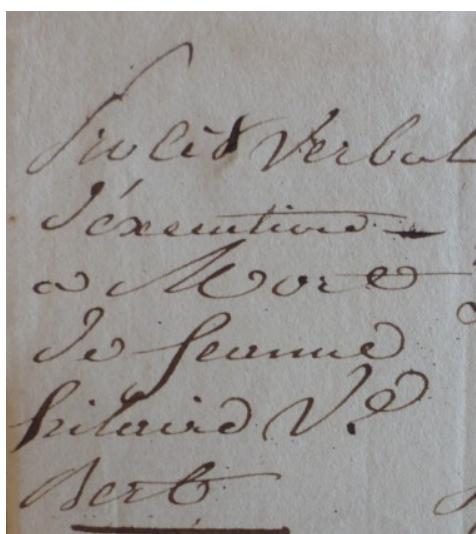 Procès verbal
d'éxecution
a Mort
de Jeanne
hilaire V.e
Bert